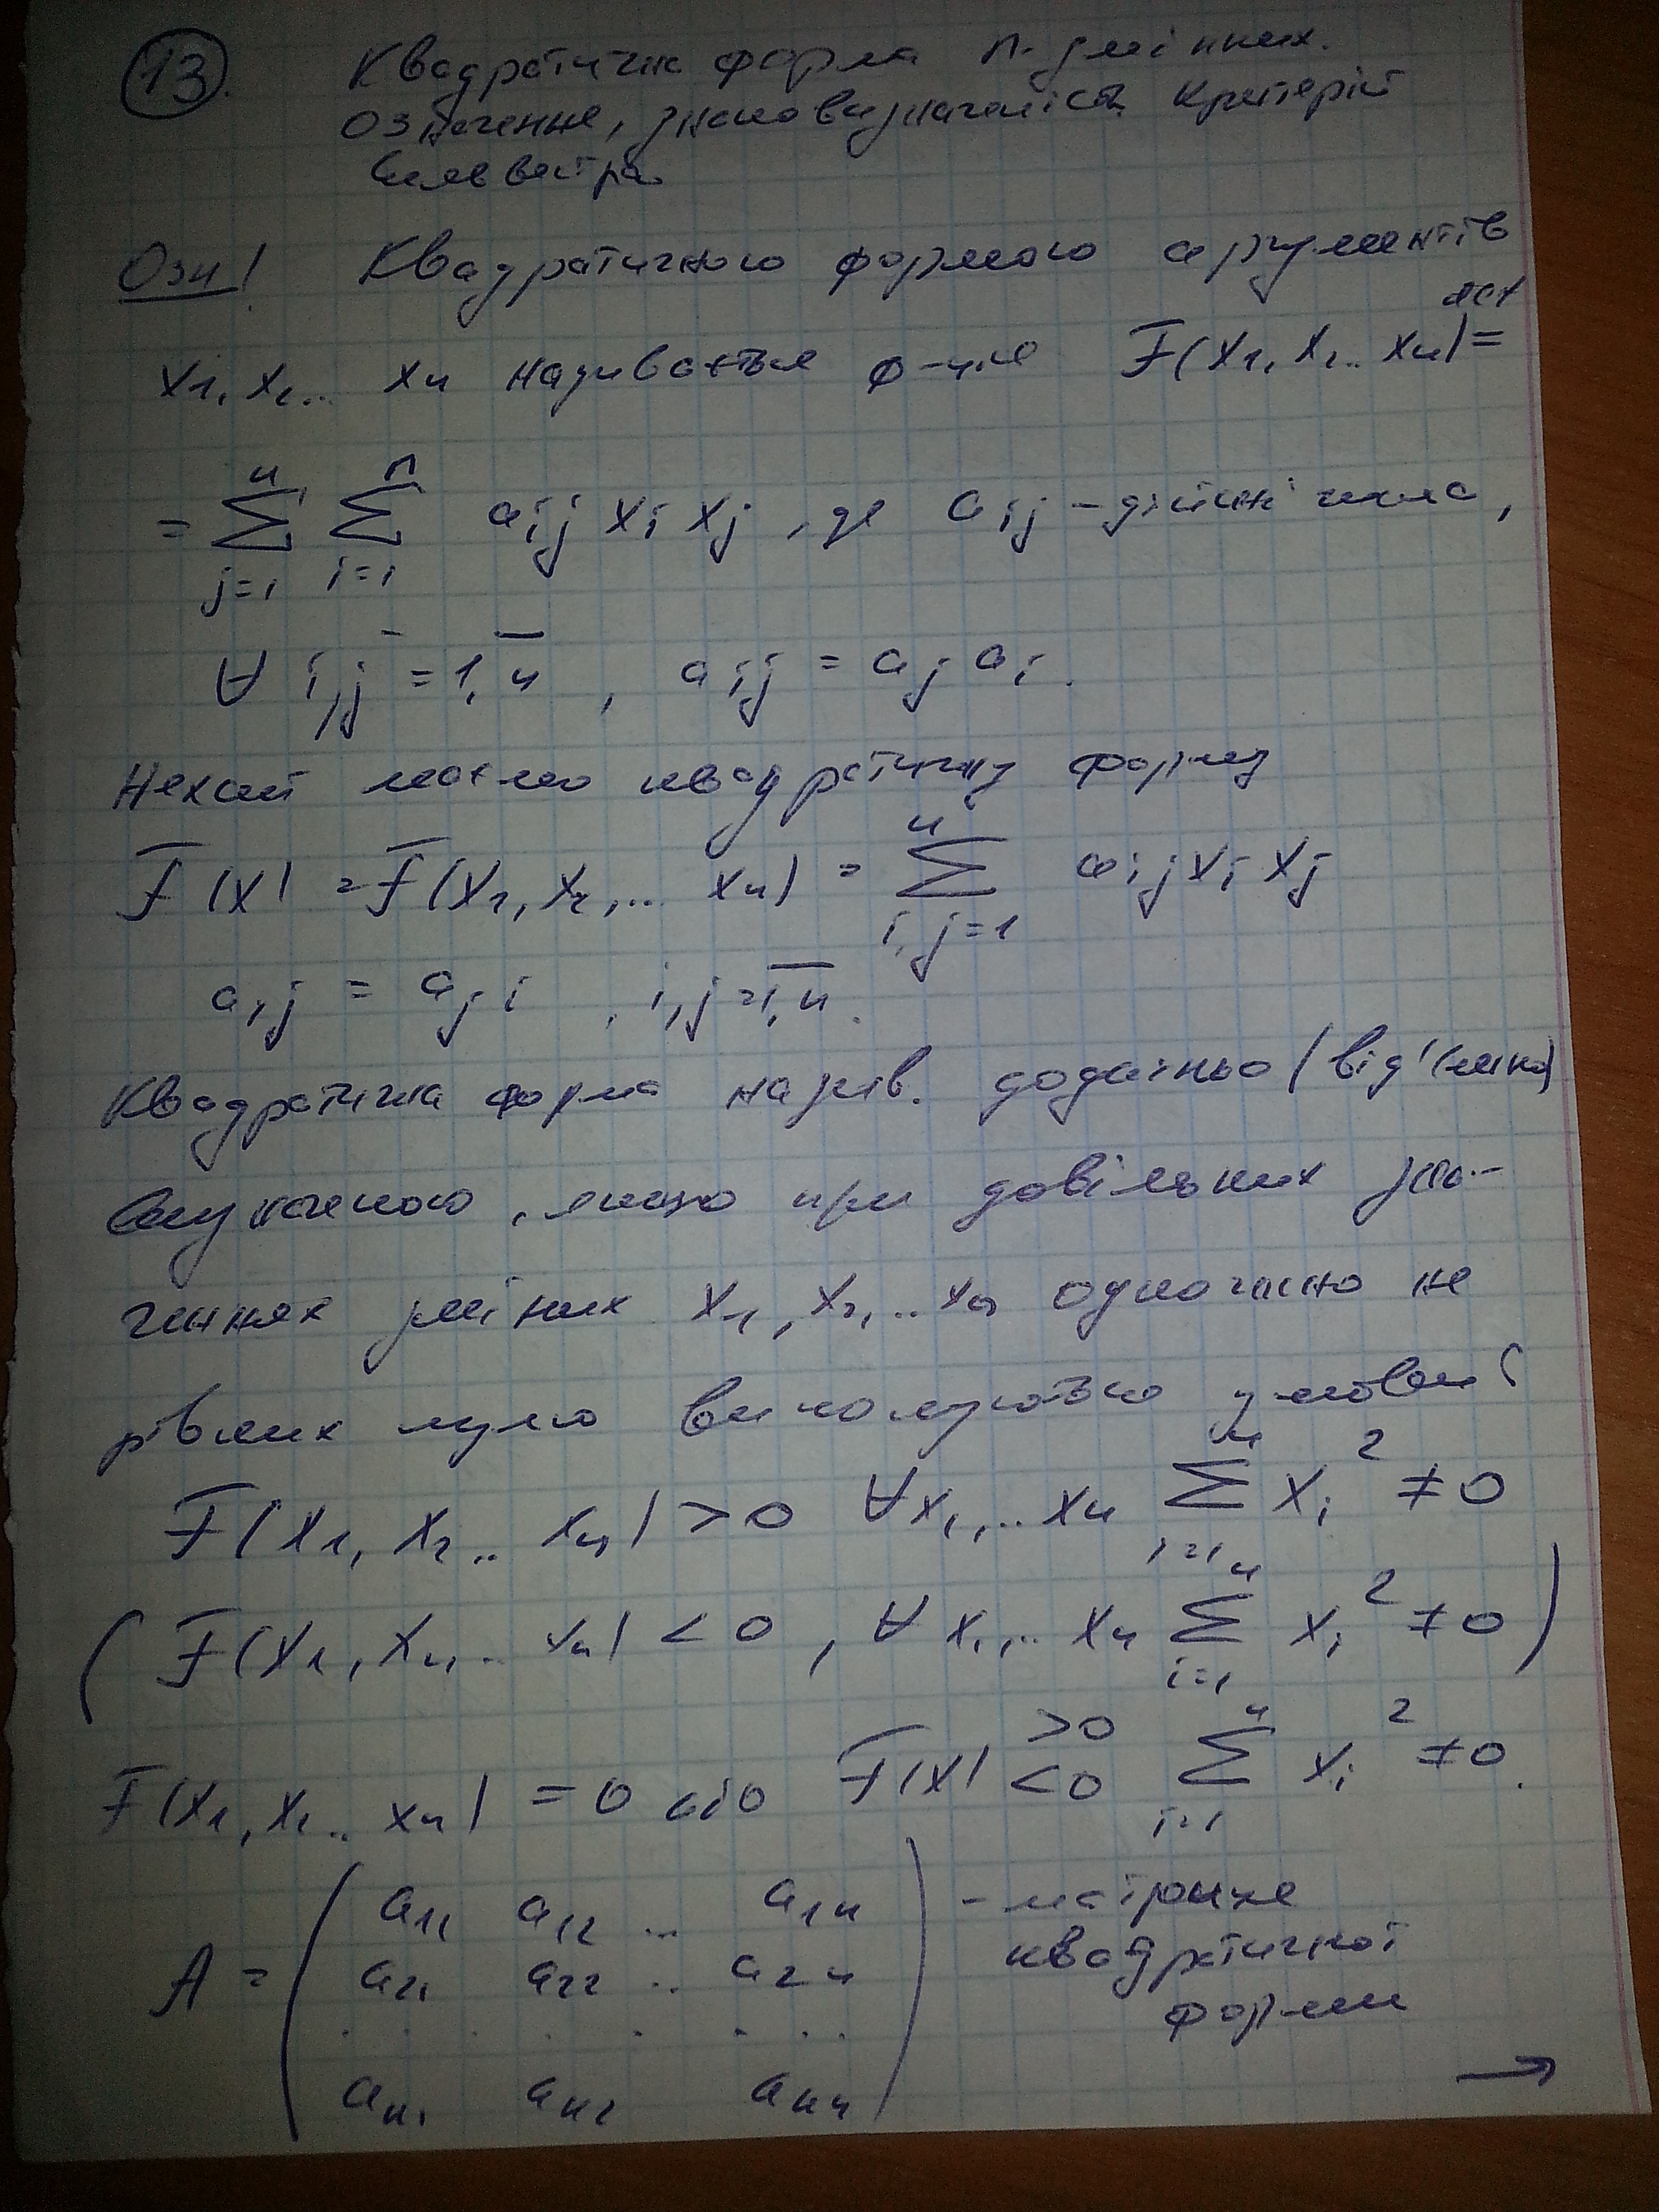 13. Квадратична форма n-змінних.
Означення, знаковизначеність. Критерій
Сильвестра.
Озн! Квадратичною формою аргументів
x₁, x₂.. xₙ називається ф-ція F(x₁, x₂.. xₙ) =
= ∑ⁿⱼ₌₁ ∑ⁿᵢ₌₁ aᵢⱼ xᵢ xⱼ , де aᵢⱼ - дійсні числа,
∀ i,j = 1,n , aᵢⱼ = aⱼ aᵢ.
Нехай маємо квадратичну форму
F(x) = F(x₁, x₂,.. xₙ) = ∑ⁿᵢ,ⱼ₌₁ aᵢⱼ xᵢ xⱼ
aᵢⱼ = aⱼᵢ , i,j = 1,n.
Квадратична форма назив. додатньо (від'ємно)
, якщо при довільних зна-
ченнях змінних x₁, x₂,.. xₙ одночасно не
рівних нулю виконуються умови:
F(x₁, x₂.. xₙ) > 0 ∀x₁,.. xₙ ∑ⁿᵢ₌₁ xᵢ² ≠ 0
(F(x₁, xₙ.. xₙ) < 0 , ∀ x₁,.. xₙ ∑ⁿᵢ₌₁ xᵢ² ≠ 0)
F(x₁, x₂.. xₙ) = 0 або F(x) >0 <0 ∑ⁿᵢ₌₁ xᵢ² ≠ 0.
A = ( a₁₁ a₁₂ ... a₁ₙ ) - матриця
a₂₁ a₂₂ .. a₂ₙ квадратичної
. . . . . . . форми
aₙ₁ aₙ₂ aₙₙ →